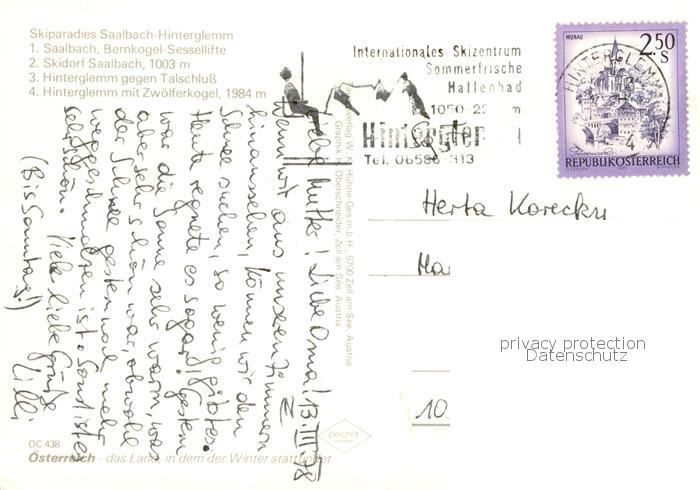 Skiparadies Saalbach-Hinterglemm
1. Saalbach, Bernkogel-Sessellifte
2. Skidorf Saalbach, 1003 m
3. Hinterglemm gegen Talschluß
4. Hinterglemm mit Zwölferkogel, 1984 m
Internationales Skizentrum
Sommerfrische
Hallenbad
1050 m
Hintergle
Tel. 313
MURAU
2.50
S
HINTERGLEMM
REPUBLIK ÖSTERREICH
13. III. 78
Liebe Mutter! Liebe Oma!
Wenn wir aus unseren Zimmern
hinaussehen, können wir den
Schnee suchen, so wenig gibt es.
Heute regnete es sogar! Gestern
war die Sonne sehr warm, was
aber sehr schön war, obwohl
der Schnee gestern noch mehr
weggeschmolzen ist. Sonst ist es
sehr schön. Viele liebe Grüße
Lilli
(Bis Sonntag!)
Hühne Ges.m.b.H., 5700 Zell am See, Austria
Oberschneider, Zell am See, Austria
Herta Korecky
Ma
10.
privacy protection
Datenschutz
OC 438
Österreich - das Land, in dem der Winter stattfindet